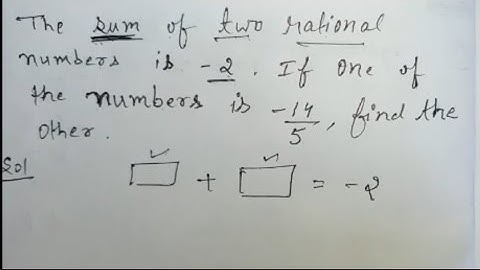 The sum of two rational
numbers is -2. If one of
the numbers is -14/5, find the
other.
Sol
✓ ✓
□ + □ = -2